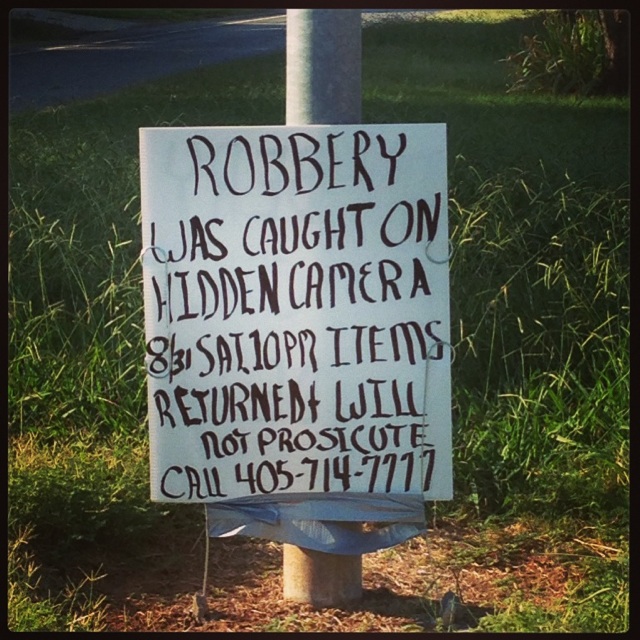 ROBBERY
WAS CAUGHT ON
HIDDEN CAMERA
8/31 SAT. 10PM ITEMS
RETURNED & WILL
NOT PROSICUTE
CALL 405-714-7777